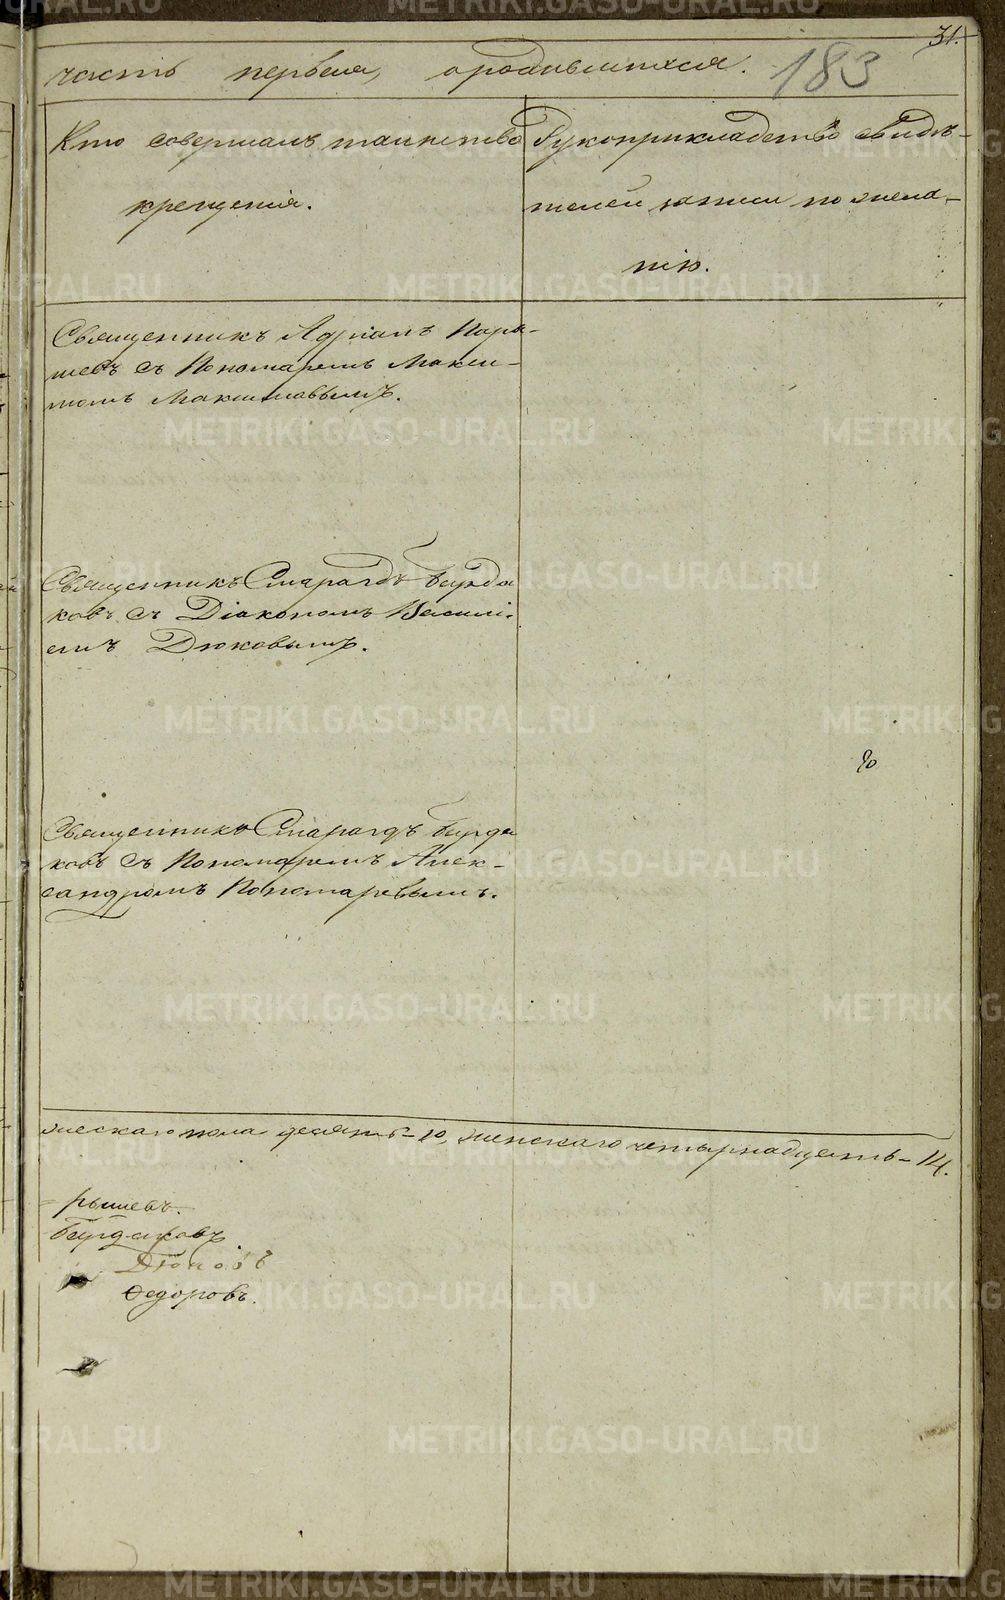 31.
183
часть первая, о родившихся.
Кто совершалъ таинство
крещенія.
Рукоприкладство свидѣ-
телей записи по жела-
нію.
Священникъ Адріанъ Пары-
шевъ съ Пономаремъ Макси-
момъ Максимовымъ.
Священникъ Смарагдъ Бурда
ковъ съ Діакономъ Василі-
емъ Дюковымъ.
Священникъ Смарагдъ Бурда
ковъ съ Пономаремъ Алек-
сандромъ Пономаревымъ.
жескаго пола десять - 10, женскаго четырнадцать - 14.
рышевъ.
Бурдаковъ.
Дюковъ
Ѳедоровъ.
METRIKI.GASO-URAL.RU